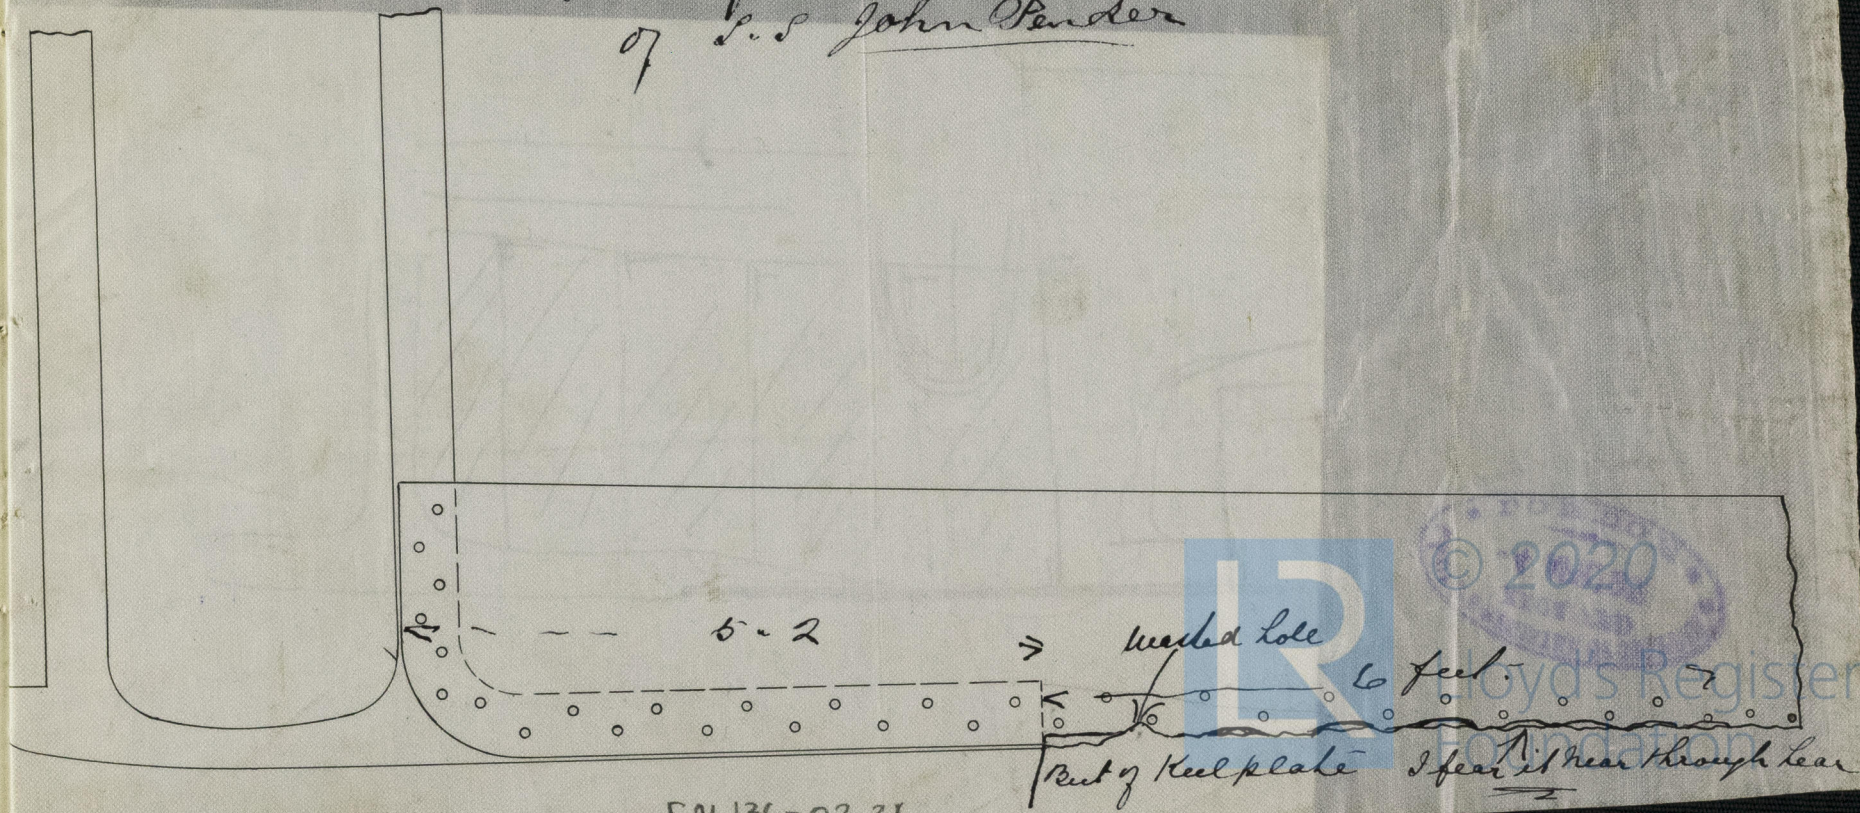 of S.S John Pender
5 - 2
wasted hole
6 feet.
But of Keel plate
I fear it near through hear
LR
© 2020
Lloyd's Register
Foundation